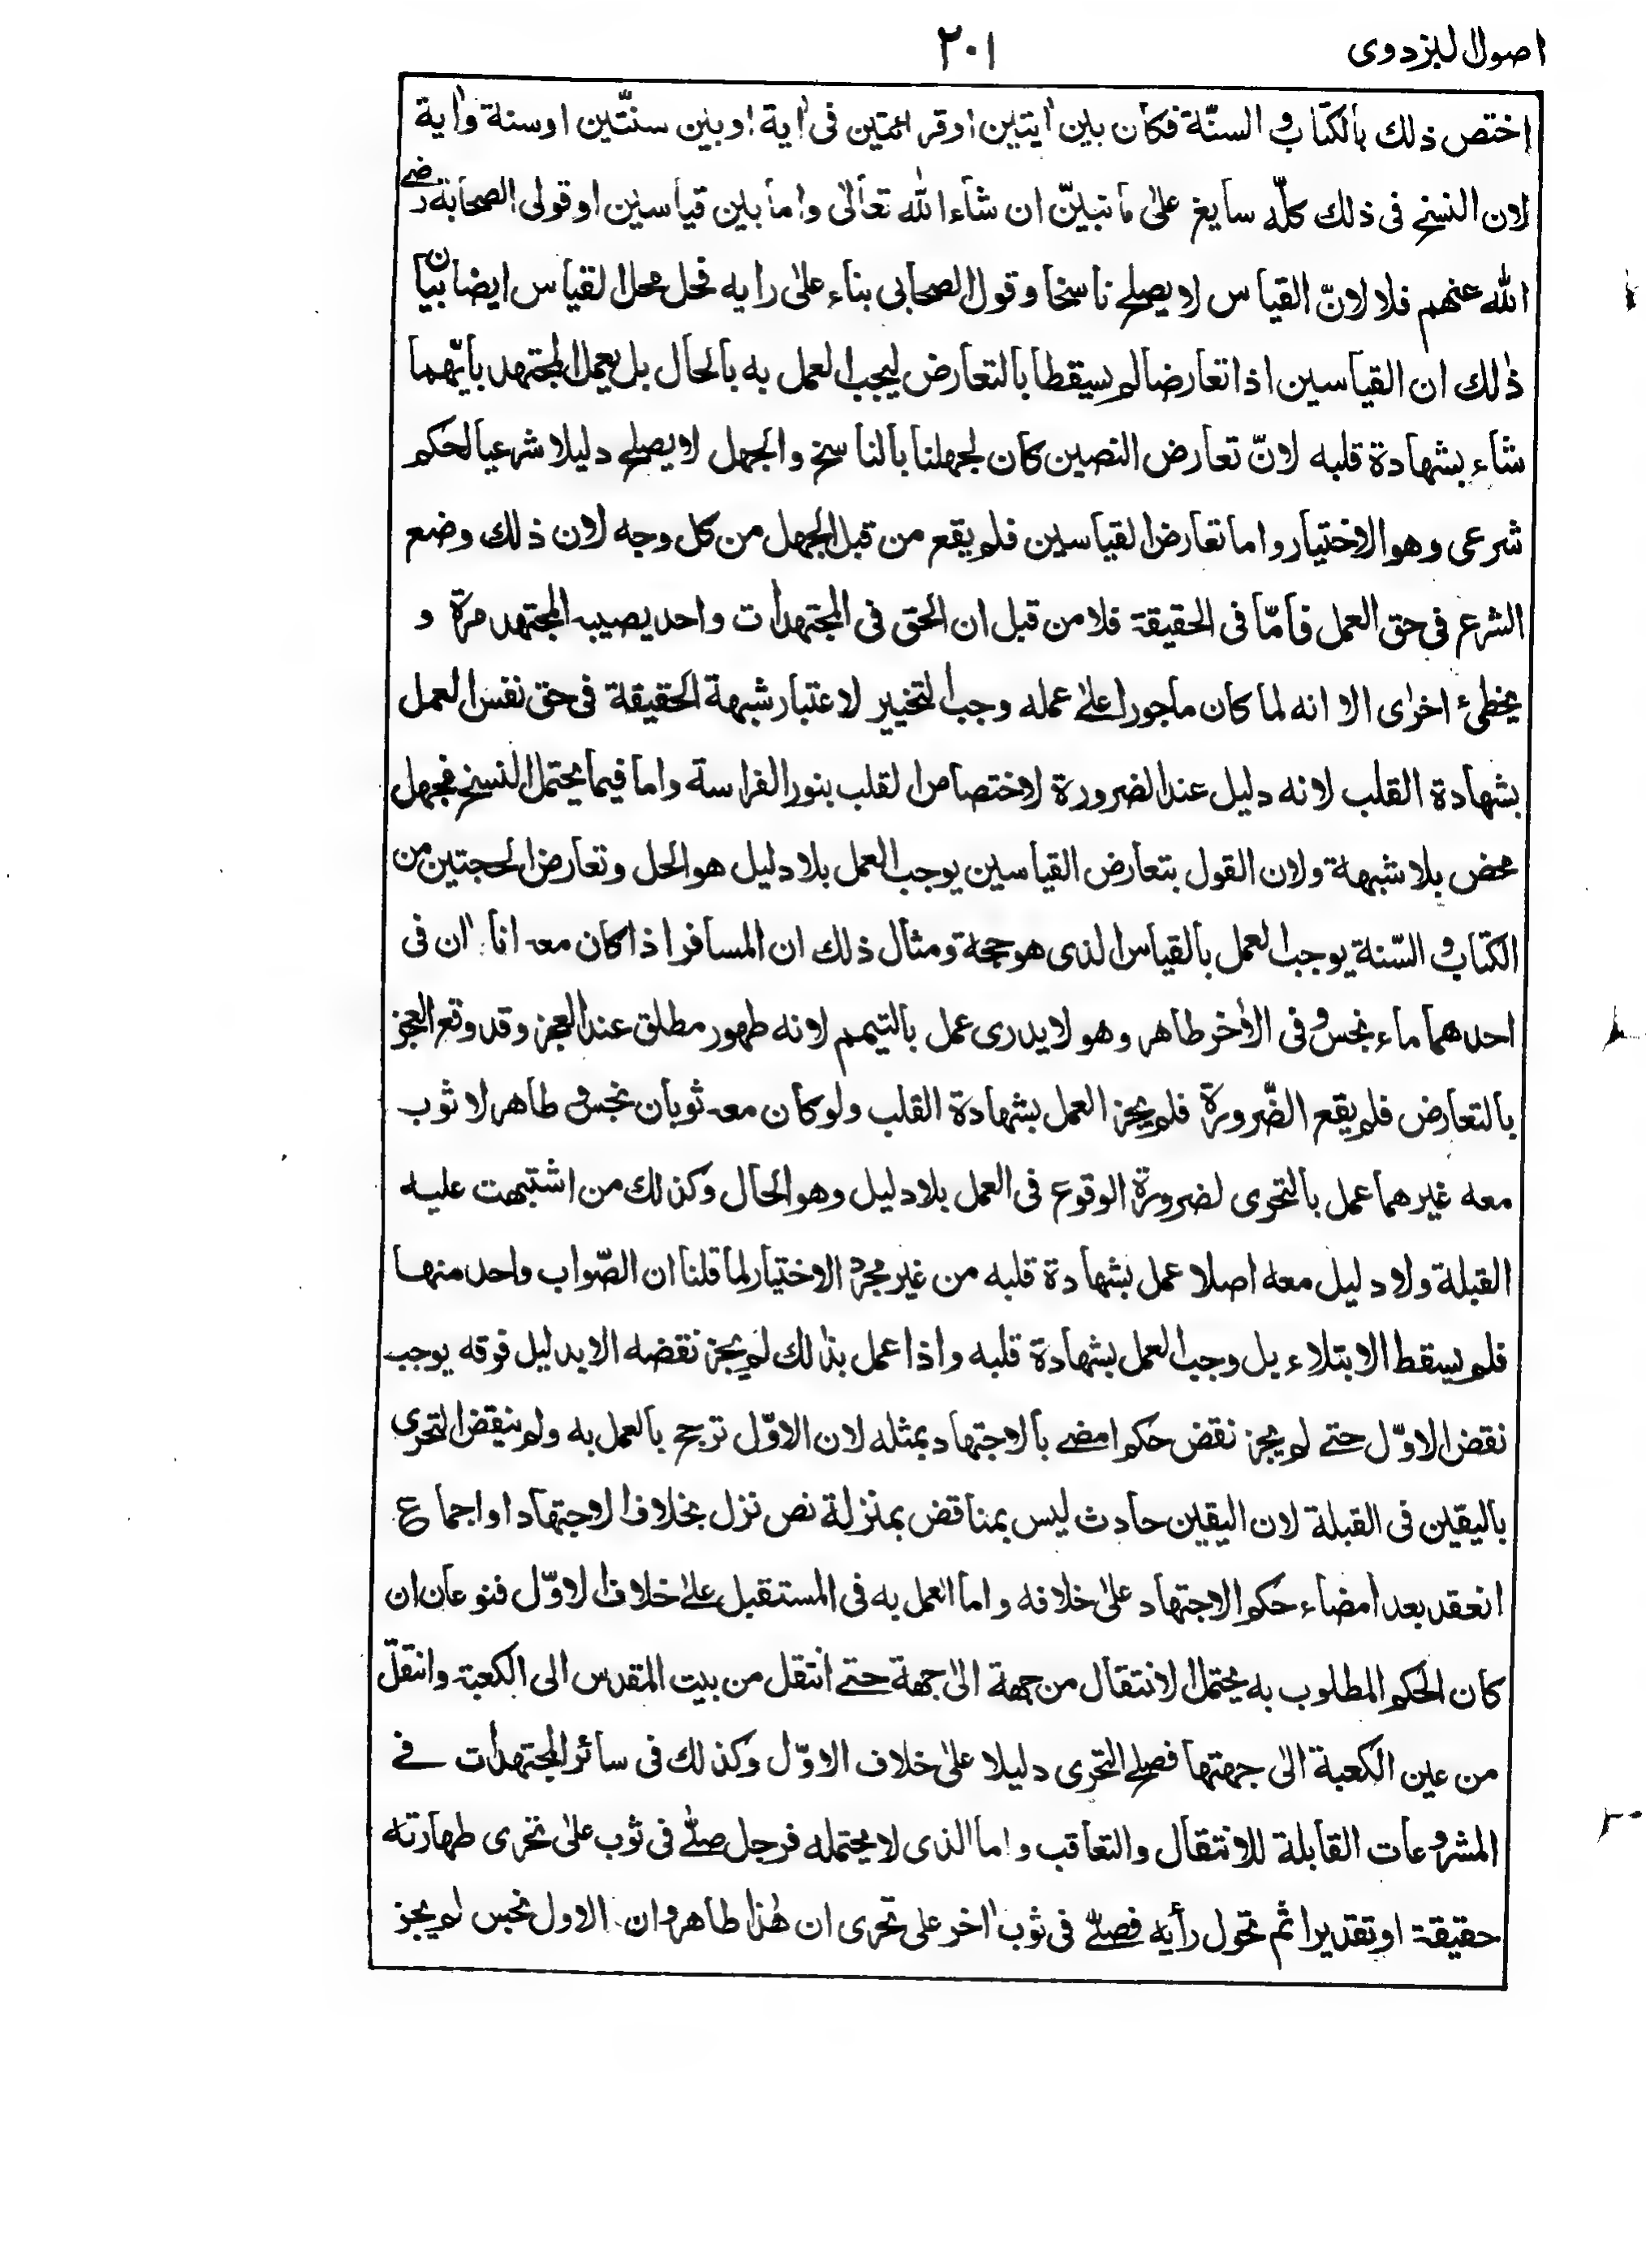 اصول البزدوی
٢٠١
اختص ذلك بالكتاب و السنّة فكان بين ايتين اوقرائتين فى اية اوبين سنتّين اوسنة واٰية
لان النسخ فى ذلك كلّه سايغ علیٰ ما نبيّن ان شاء الله تعالیٰ واما بين قياسين اوقولى الصحابة رضے
الله عنهم فلا لانّ القياس لا يصلح ناسخا وقول الصحابى بناء علیٰ رايه فحل محل القياس ايضا بيان
ذٰلك ان القياسين اذا تعارضا لم يسقطا بالتعارض ليجب العمل به بالحال بل يعمل المجتهد بايّهما
شاء بشهادة قلبه لانّ تعارض النصين كان لجهلنا بالناسخ والجهل لا يصلح دليلا شرعيا لحكم
شرعى وهو الاختيار واما تعارض القياسين فلم يقع من قبل الجهل من كل وجه لان ذلك وضع
الشرع فى حق العمل فامّا فى الحقيقة فلا من قبل ان الحق فى المجتهدات واحد يصيبه المجتهد مرة و
يخطئ اخرٰى الا انه لما كان ماجورا علیٰ عمله وجب التخيير لاعتبار شبهة الحقيقة فى حق نفس العمل
بشهادة القلب لانه دليل عند الضرورة لاختصاص القلب بنور الفراسة واما فيما يحتمل النسخ فجهل
محض بلا شبهة ولان القول بتعارض القياسين يوجب العمل بلا دليل هو الحل وتعارض الحجتين من
الكتاب و السّنة يوجب العمل بالقياس الذى هو حجة ومثال ذلك ان المسافر اذا كان معه اناءان فى
احدهما ماء نجس و فى الأخر طاهر وهو لا يدرى عمل بالتيمم لانه طهور مطلق عند العجز وقد وقع العجز
بالتعارض فلم يقع الضّرورة فلم يجز العمل بشهادة القلب ولو كان معه ثوبان نجس و طاهر لا ثوب
معه غيرهما عمل بالتحرى لضرورة الوقوع فى العمل بلا دليل وهو الحال وكذلك من اشتبهت عليه
القبلة ولا دليل معه اصلا عمل بشهادة قلبه من غير مجرد الاختيار لما قلنا ان الصّواب واحد منها
فلم يسقط الابتلاء بل وجب العمل بشهادة قلبه واذا عمل بذٰلك لم يجز نقضه الا بدليل فوقه يوجب
نقض الاوّل حتے لم يجز نقض حكم امضے بالاجتهاد بمثله لان الاوّل ترجح بالعمل به ولم ينقض التحرى
باليقين فى القبلة لان اليقين حادث ليس بمناقض بمنزلة نص نزل بخلاف الاجتهاد او اجماع
انعقد بعد امضاء حكم الاجتهاد علیٰ خلافه واما العمل به فى المستقبل علےٰ خلاف الاوّل فنوعان ان
كان الحكم المطلوب به يحتمل الانتقال من جهة الیٰ جهة حتے انتقل من بيت المقدس الى الكعبة وانتقل
من عين الكعبة الیٰ جهتها فصلح التحرى دليلا علیٰ خلاف الاوّل وكذلك فى سائر المجتهدات فے
المشروعات القابلة للانتقال والتعاقب واما الذى لا يحتمله فرجل صلّے فى ثوب علیٰ تحرى طهارته
حقيقة او تقديرا ثم تحول رأيه فصلّے فى ثوب اٰخر على تحرى ان هٰذا طاهر وان الاول نجس لم يجز